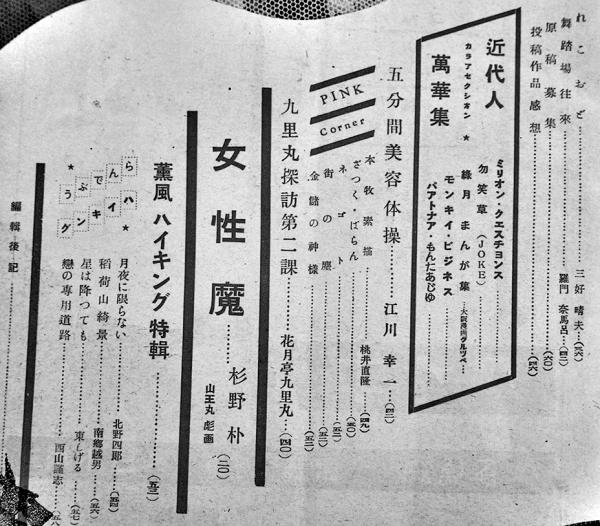 れこおど……三好晴夫…(三六)
舞踏場往來……羅門奈馬呂…(四二)
原稿募集……(六〇)
投稿作品感想……(四六)
近代人
カラアセクシオン ★
萬華集
ミリオン・クエスチョンス
勿笑草(JOKE)
綠月まんが集…大阪漫画グルッペ…
モンキイ・ビジネス
パアトナア・もんたあじゆ
五分間美容体操……江川幸一…(四三)
PINK
Corner
本牧素描……桃井直隆…(四九)
ざつく・ばらん……(五〇)
ネゴト……(五一)
街の塵……(五二)
金儲の神樣……(五三)
九里丸探訪第二課……花月亭九里丸…(四〇)
女性魔……杉野朴(二〇)
山王丸彪画
薰風ハイキング特輯……(五三)
らんでぶう
ハイキング
月夜に限らない……北野四郎…(五四)
稻荷山綺景……南鄕越男…(五六)
星は降つても……東しげる…(五七)
戀の専用道路……西山謹志
編輯後記